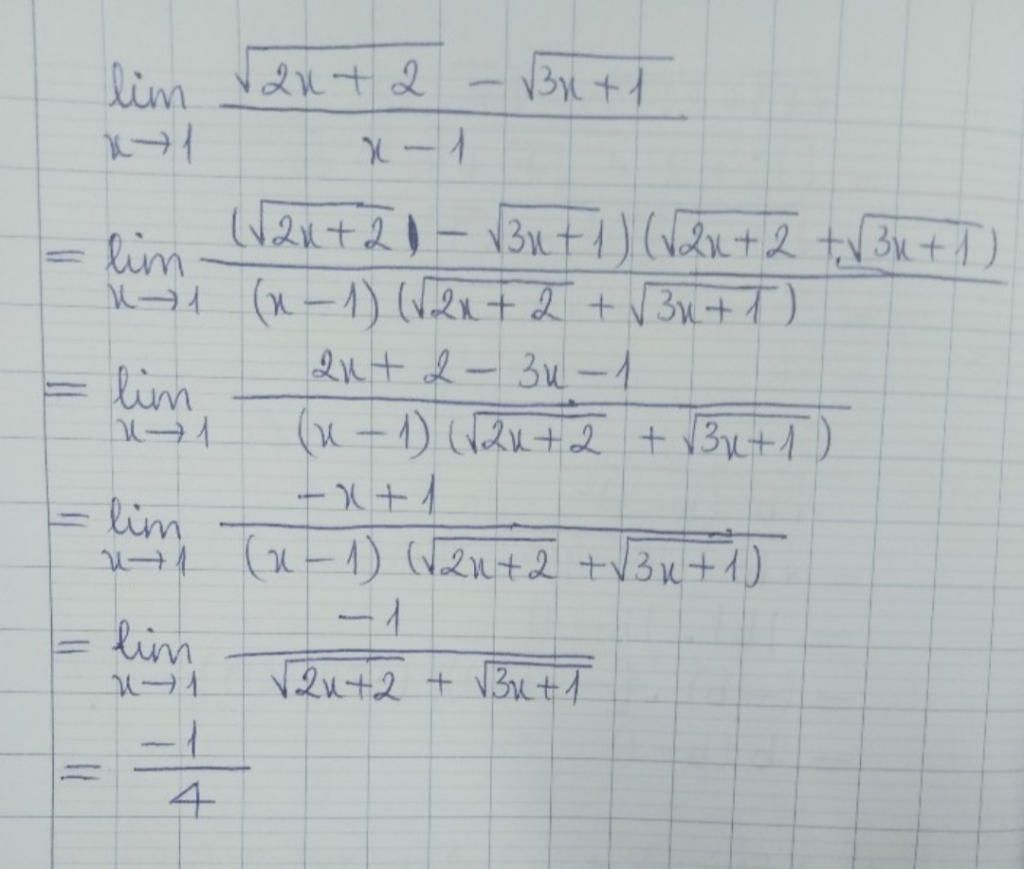 lim x→1 (√(2x + 2) − √(3x + 1)) / (x − 1)
= lim x→1 ((√(2x + 2) − √(3x + 1)) (√(2x + 2) + √(3x + 1))) / ((x − 1) (√(2x + 2) + √(3x + 1)))
= lim x→1 (2x + 2 − 3x − 1) / ((x − 1) (√(2x + 2) + √(3x + 1)))
= lim x→1 (−x + 1) / ((x − 1) (√(2x + 2) + √(3x + 1)))
= lim x→1 −1 / (√(2x + 2) + √(3x + 1))
= −1 / 4